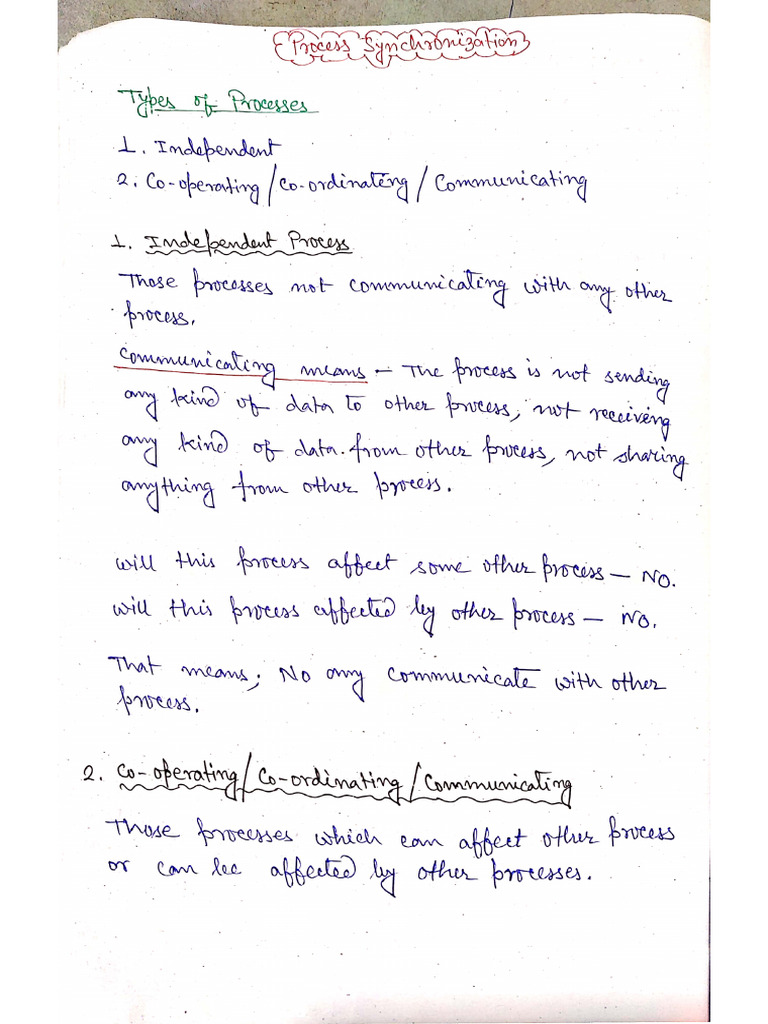 Process Synchronization
Types of Processes
1. Independent
2. Co-operating/Co-ordinating/Communicating
1. Independent Process
Those processes not communicating with any other
process.
Communicating means - The process is not sending
any kind of data to other process, not receiving
any kind of data from other process, not sharing
anything from other process.
will this process affect some other process - NO.
will this process affected by other process - NO.
That means, No any communicate with other
process.
2. Co-operating/Co-ordinating/Communicating
Those processes which can affect other process
or can be affected by other processes.